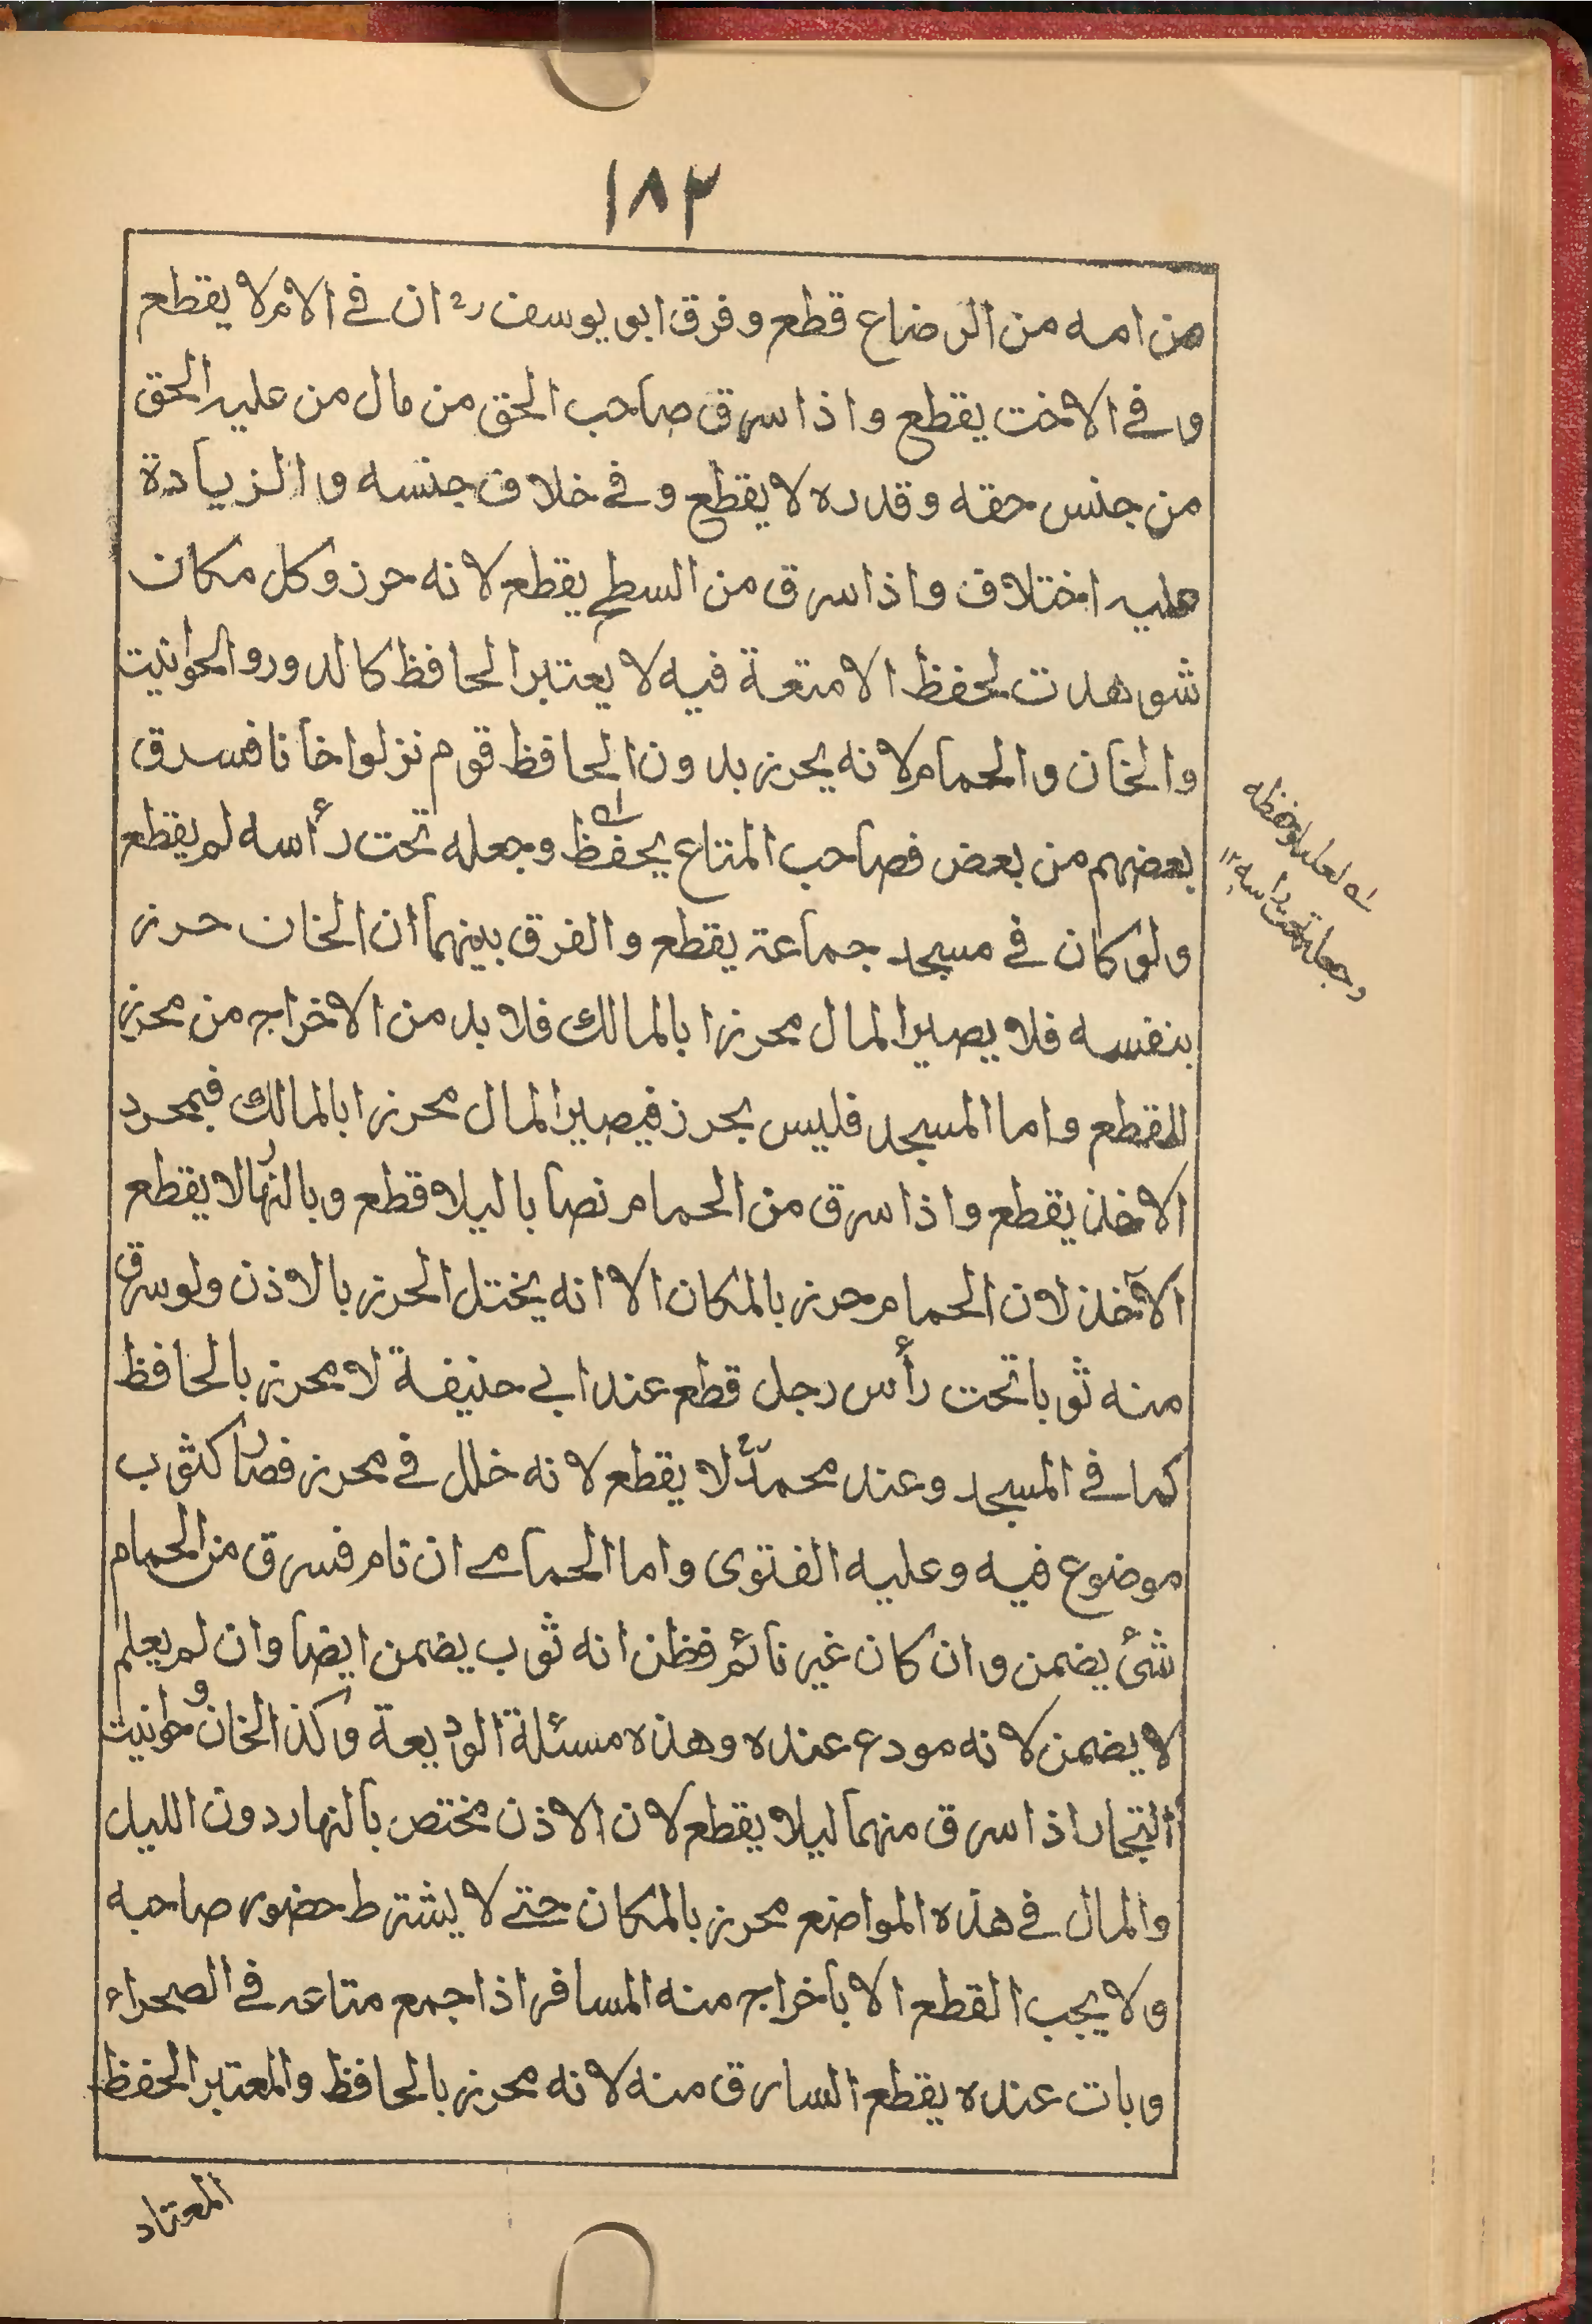 ١٨٢
من امه من الرضاع قطع وفرق ابو يوسف رح ان في الام لا يقطع
وفي الاخت يقطع واذا سرق صاحب الحق من مال من عليه الحق
من جنس حقه وقدره لا يقطع وفي خلاف جنسه والزيادة
عليه اختلاف واذا سرق من السطح يقطع لانه حرز وكل مكان
شوهدت لحفظ الامتعة فيه لا يعتبر الحافظ كالدور والحوانيت
والخان والحمام لانه يحرز بدون الحافظ قوم نزلوا خانا فسرق
بعضهم من بعض فصاحب المتاع يحفظ وجعله تحت رأسه لم يقطع
ولو كان في مسجد جماعة يقطع والفرق بينهما ان الخان حرز
بنفسه فلا يصير المال محرزا بالمالك فلا بد من الاخراج من محرز
للقطع واما المسجد فليس بحرز فيصير المال محرزا بالمالك فبمجرد
الاخذ يقطع واذا سرق من الحمام نصابا ليلا قطع وبالنهار لا يقطع
الآخذ لان الحمام حرز بالمكان الا انه يختل الحرز بالاذن ولو سرق
منه ثوبا تحت رأس رجل قطع عند ابي حنيفة لا محرز بالحافظ
كما في المسجد وعند محمدؒ لا يقطع لانه خلل في محرز فصار كثوب
موضوع فيه وعليه الفتوى واما الحمامي ان نام فسرق من الحمام
شئ يضمن وان كان غير نائم فظن انه ثوب يضمن ايضا وان لم يعلم
لا يضمن لانه مودع عنده وهذه مسئلة الوديعة وكذا الخان وحوانيت
التجار اذا سرق منهما ليلا يقطع لان الاذن مختص بالنهار دون الليل
والمال في هذه المواضع محرز بالمكان حتى لا يشترط حضور صاحبه
ولا يجب القطع الا بأخراجه منه المسافر اذا جمع متاعه في الصحراء
وبات عنده يقطع السارق منه لانه محرز بالحافظ والمعتبر الحفظ
المعتاد
له لعله او حفظه
وجعله تحت رأسه ١٢